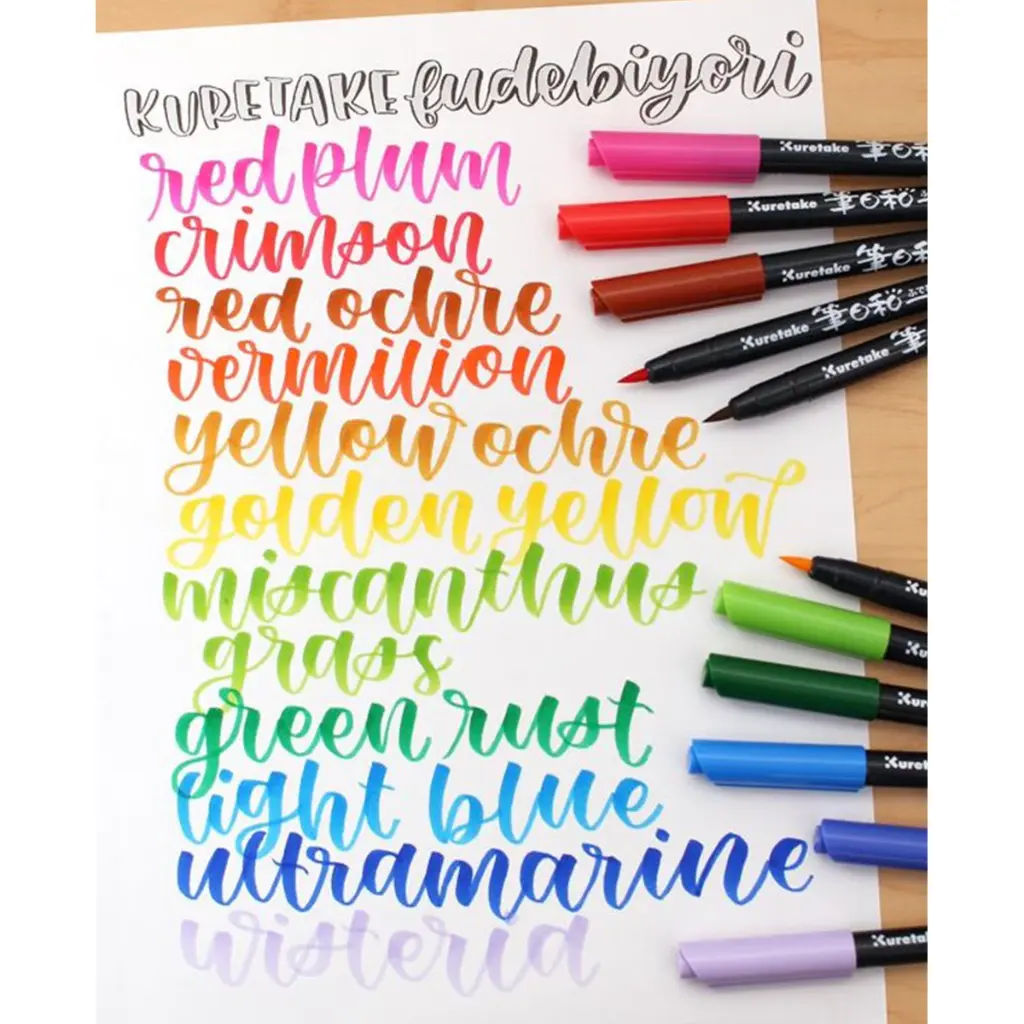 KURETAKE fudebiyori
red plum
crimson
red ochre
vermilion
yellow ochre
golden yellow
miscanthus
grass
green rust
light blue
ultramarine
wisteria
Kuretake 筆日和
Kuretake 筆日和
Kuretake 筆日和
Kuretake 筆日和 ふで
Kuretake 筆
Ku
Ku
Kur
Kuret
Kuretak